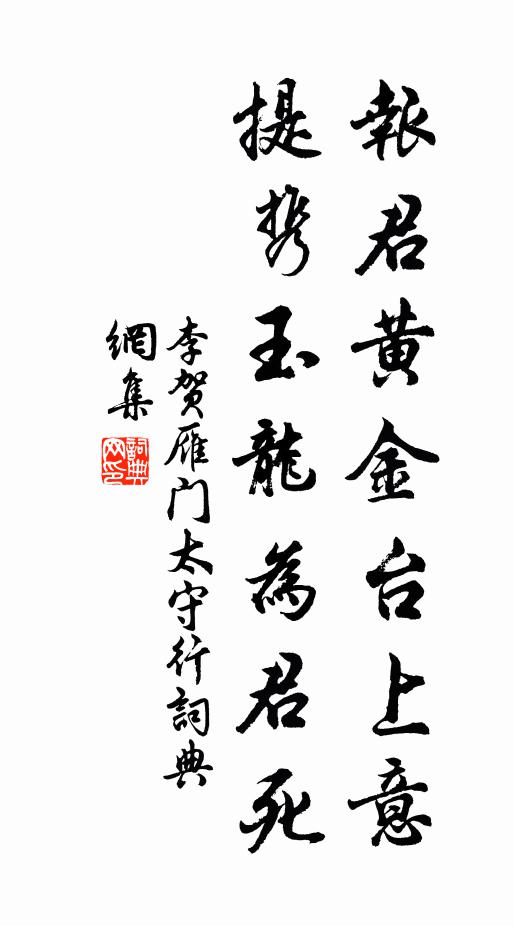 報君黄金台上意
提携玉龍為君死
李贺雁门太守行詞典
網集
詞典网印